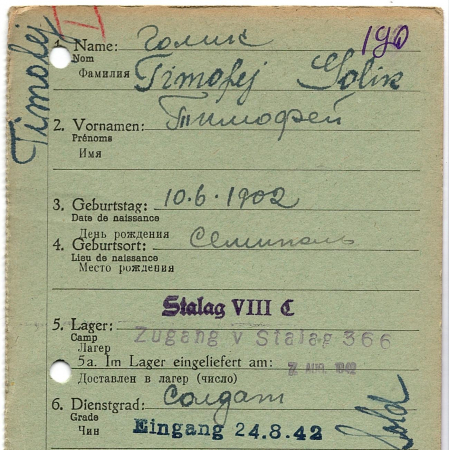 Timofej
I
190
1. Name: Голик
Nom
Фамилия Timofej Golik
2. Vornamen: Тимофей
Prénoms
Имя
3. Geburtstag: 10.6.1902
Date de naissance
День рождения
4. Geburtsort: Семиполь
Lieu de naissance
Место рождения
Stalag VIII C
5. Lager: Zugang v Stalag 366
Camp
Лагер
5a. Im Lager eingeliefert am: 2 AUG. 1942
Доставлен в лагер (число)
6. Dienstgrad: Солдат
Grade
Чин Eingang 24.8.42
Sold